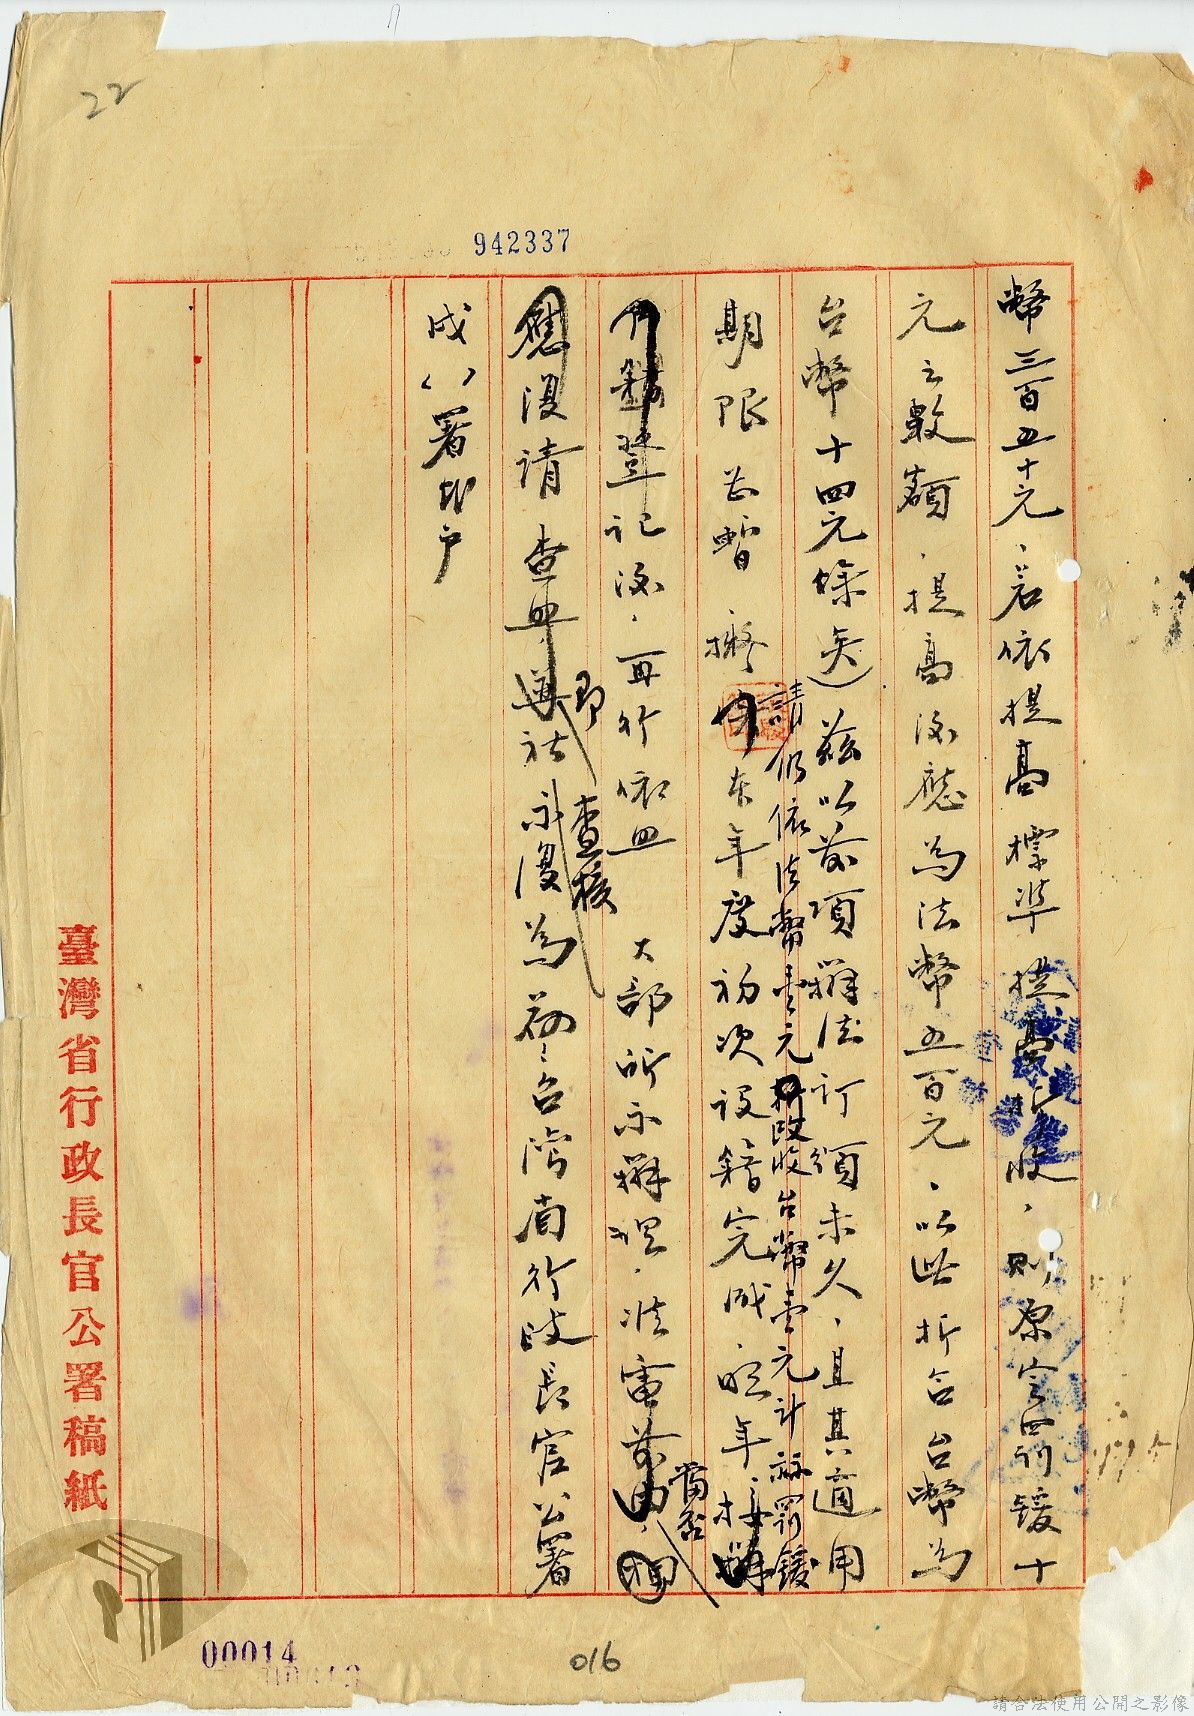 22
942337
幣三百五十元、若依提高標準提高征收、則原定四罰鍰十
元之數額、提高後應為法幣五百元、以此折合台幣為
台幣十四元餘矣)茲以前項辦法訂頒未久、且其適用
請仍依法幣壹元折改收台幣壹元計
罰鍰
期限甚暫 擬 本年度初次設籍完成、明年接辦
登記後、再行依照 大部所示辦理、准電前由、相
當否
應復請查照 為荷、台灣省行政長官公署
即
查核
戌()署民戶
臺灣省行政長官公署稿紙
00014
016
請合法使用公開之影像